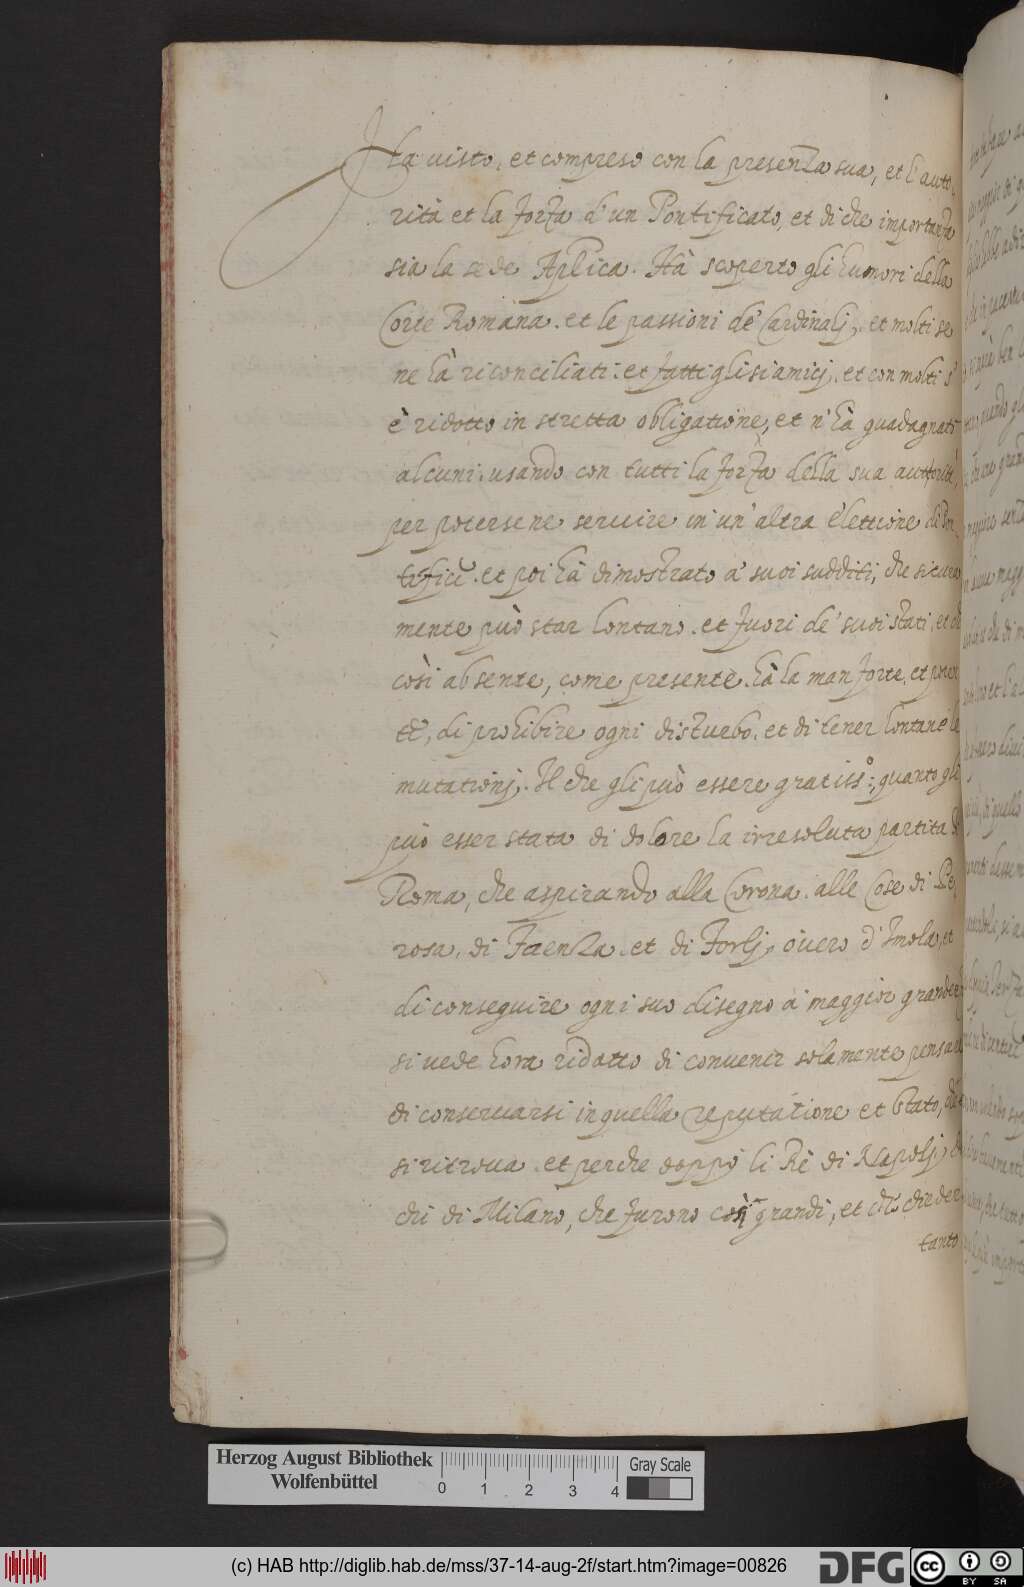 Ha uisto, et compreso con la presenza sua, et l'auto-
rità et la forza d'un Pontificato, et di che importanza
sia la sede Aplica. Hà scoperto gli humori della
Corte Romana. et le passioni de' Cardinalj, et molti se
ne hà riconciliati: et fattiglisi amicj. et con molti s'
è ridotto in stretta obligatione, et n'hà guadagnati
alcuni. usando con tutti la forza della sua auttorità,
per potersene seruire in un'altra elettione di Pon-
tifici. et poi hà dimostrato a' suoi sudditi, che sicura
mente può star lontano. et fuori de' suoi stati, et che
così absente, come presente hà la man forte, et poten
te, di prohibire ogni disturbo. et di tener lontane le
mutationj. Il che gli può essere gratiss.º, quanto gli
può esser stata di dolore la irresoluta partita di
Roma, che aspirando alla Corona. alle Cose di Pe-
rosa, di Faenza. et di Forlj, ouero d'Imola, et
di conseguire ogni suo disegno a' maggior
si uede hora ridotto di conuenir solamente pensare
di conseruarsi in quella reputatione et stato, che
si ritroua. et perche doppo li Rè di Napolj
chi di Milano, che furono così grandi, et
tanto
Herzog August Bibliothek
Wolfenbüttel
0 1 2 3 4
Gray Scale
(c) HAB http://diglib.hab.de/mss/37-14-aug-2f/start.htm?image=00826
DFG
cc BY SA